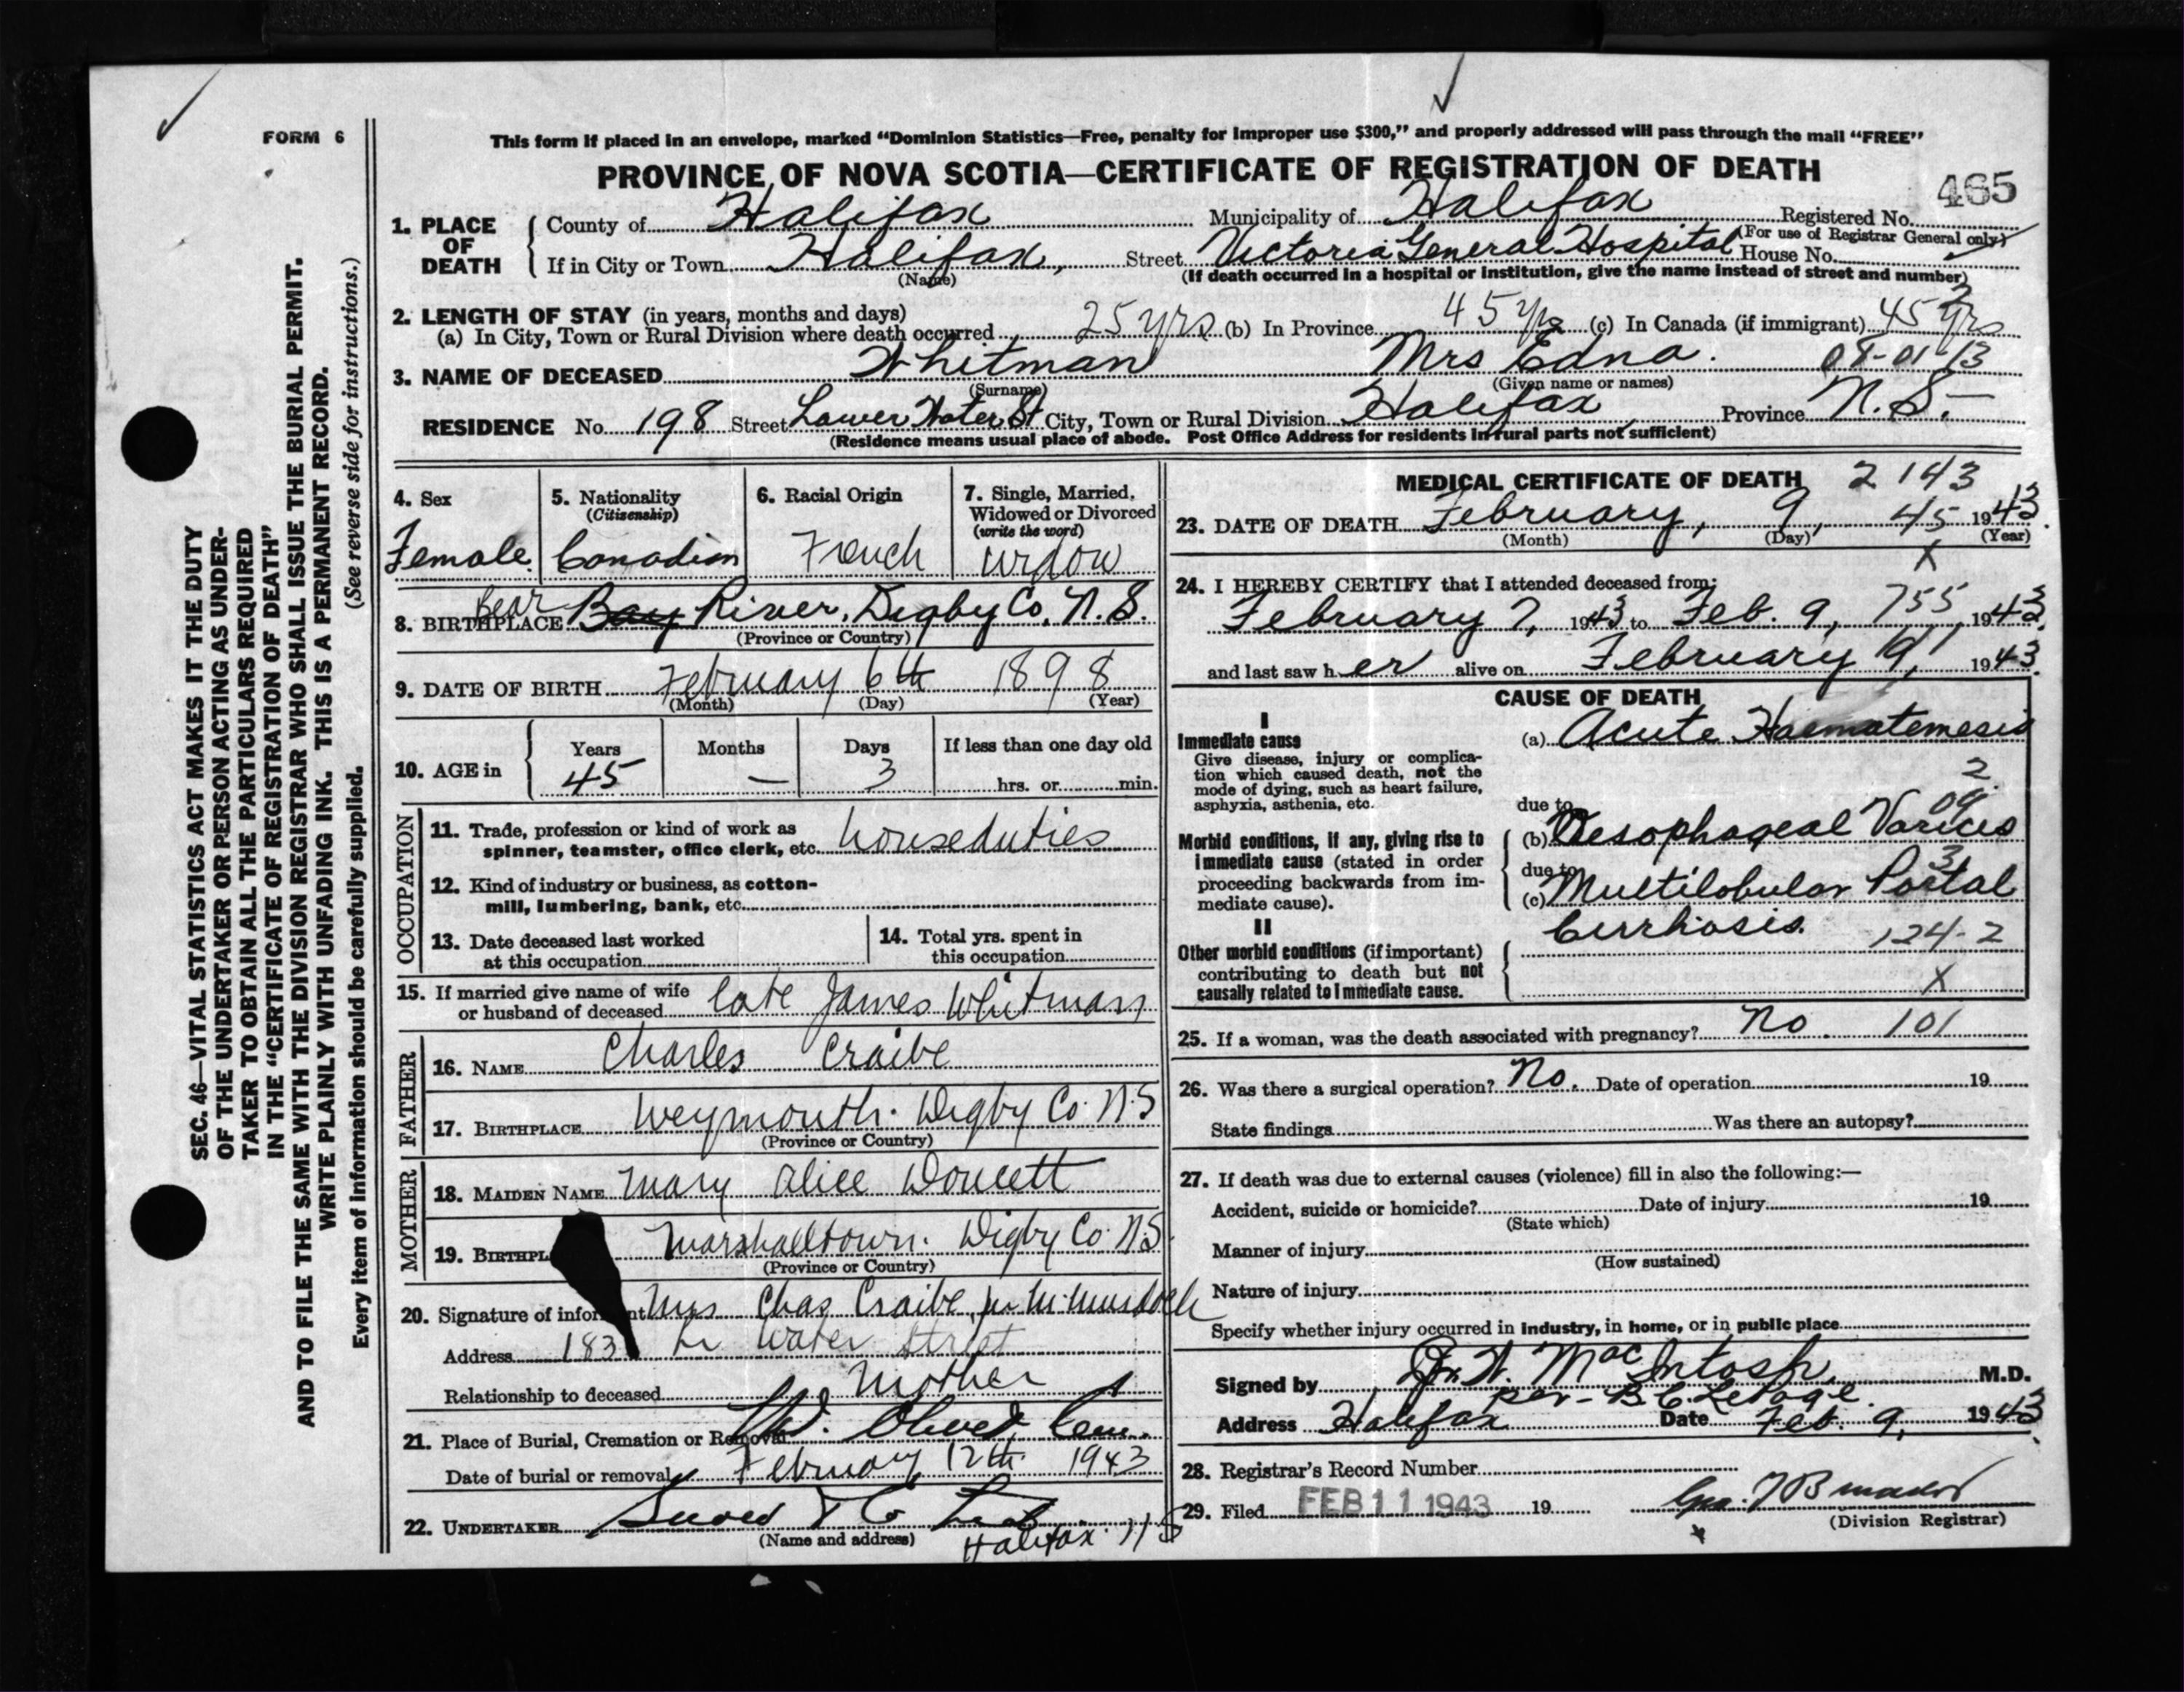 FORM 6
This form if placed in an envelope, marked “Dominion Statistics—Free, penalty for improper use $300,” and properly addressed will pass through the mail “FREE”
PROVINCE OF NOVA SCOTIA—CERTIFICATE OF REGISTRATION OF DEATH
465
1. PLACE OF DEATH
County of Halifax Municipality of Halifax Registered No.
(For use of Registrar General only)
If in City or Town Halifax, Street Victoria General Hospital House No.
(Name) (If death occurred in a hospital or institution, give the name instead of street and number)
2. LENGTH OF STAY (in years, months and days)
(a) In City, Town or Rural Division where death occurred 25 yrs (b) In Province 45 yrs (c) In Canada (if immigrant) 45 yrs
3. NAME OF DECEASED Whitman Mrs Edna. 08-01-13
(Surname) (Given name or names)
RESIDENCE No. 198 Street Lower Water St City, Town or Rural Division Halifax Province N.S.
(Residence means usual place of abode. Post Office Address for residents in rural parts not sufficient)
4. Sex
Female
5. Nationality
(Citizenship)
Canadian
6. Racial Origin
French
7. Single, Married, Widowed or Divorced
(write the word)
widow
8. BIRTHPLACE Bay Bear River, Digby Co. N.S.
(Province or Country)
9. DATE OF BIRTH February 6th 1898
(Month) (Day) (Year)
10. AGE in
Years Months Days If less than one day old
45 — 3 hrs. or min.
OCCUPATION
11. Trade, profession or kind of work as
spinner, teamster, office clerk, etc. houseduties
12. Kind of industry or business, as cotton-
mill, lumbering, bank, etc.
13. Date deceased last worked
at this occupation
14. Total yrs. spent in
this occupation
15. If married give name of wife
or husband of deceased late James Whitman
FATHER
16. NAME Charles Craibe
17. BIRTHPLACE Weymouth. Digby Co. N.S
(Province or Country)
MOTHER
18. MAIDEN NAME Mary Alice Doucett
19. BIRTHPL Marshalltown. Digby Co. N.S
(Province or Country)
20. Signature of informant Mrs Chas Craibe, per M. Murdoch
Address 183 Lr Water Street
Relationship to deceased Mother
21. Place of Burial, Cremation or Removal Mt. Olivet Cem.
Date of burial or removal February 12th 1943
22. UNDERTAKER Snow & Co Ltd
(Name and address) Halifax. N S
MEDICAL CERTIFICATE OF DEATH 2143
23. DATE OF DEATH February, 9, 45 1943.
(Month) (Day) (Year)
X
24. I HEREBY CERTIFY that I attended deceased from:
February 7, 1943 to Feb. 9, 755, 1943
and last saw her alive on February 9, 1943.
CAUSE OF DEATH
I
Immediate cause
Give disease, injury or complica-
tion which caused death, not the
mode of dying, such as heart failure,
asphyxia, asthenia, etc.
(a) Acute Haematemesis
2
due to
09
Morbid conditions, if any, giving rise to
immediate cause (stated in order
proceeding backwards from im-
mediate cause).
(b) Oesophageal Varices
3
due to
(c) Multilobular Portal
Cirrhosis. 124-2
II
Other morbid conditions (if important)
contributing to death but not
causally related to immediate cause.
X
25. If a woman, was the death associated with pregnancy? No. 101
26. Was there a surgical operation? No. Date of operation 19
State findings Was there an autopsy?
27. If death was due to external causes (violence) fill in also the following:—
Accident, suicide or homicide? Date of injury 19
(State which)
Manner of injury
(How sustained)
Nature of injury
Specify whether injury occurred in industry, in home, or in public place
Signed by Dr. H. MacIntosh, M.D.
per- B.C. LePage.
Address Halifax Date Feb. 9, 1943.
28. Registrar’s Record Number
29. Filed FEB 11 1943 19
(Division Registrar)
SEC. 46—VITAL STATISTICS ACT MAKES IT THE DUTY
OF THE UNDERTAKER OR PERSON ACTING AS UNDER-
TAKER TO OBTAIN ALL THE PARTICULARS REQUIRED
IN THE “CERTIFICATE OF REGISTRATION OF DEATH”
AND TO FILE THE SAME WITH THE DIVISION REGISTRAR WHO SHALL ISSUE THE BURIAL PERMIT.
WRITE PLAINLY WITH UNFADING INK. THIS IS A PERMANENT RECORD.
Every item of information should be carefully supplied. (See reverse side for instructions.)